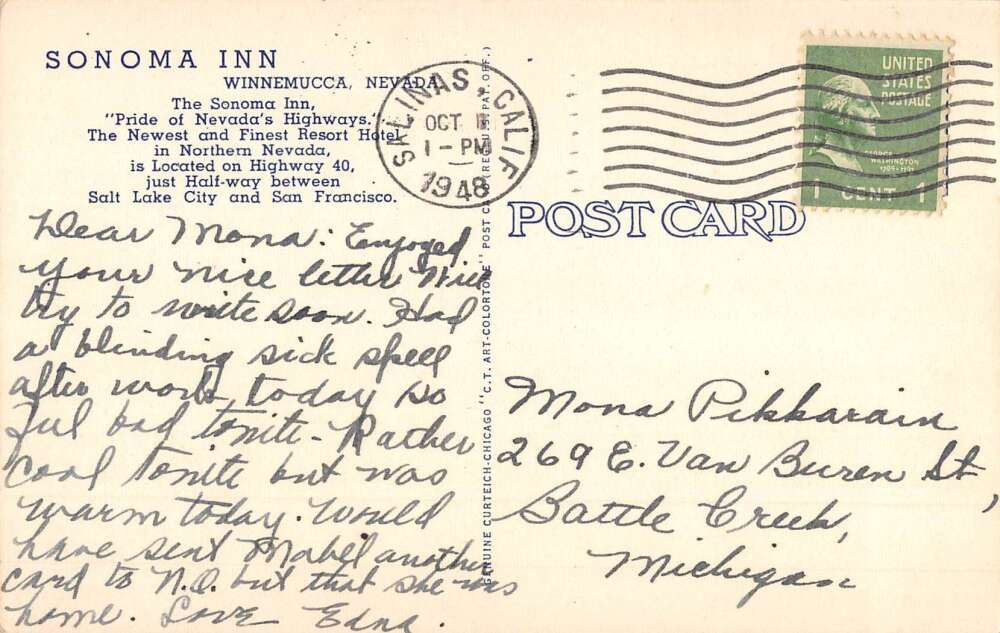 SONOMA INN
WINNEMUCCA, NEVADA
The Sonoma Inn,
"Pride of Nevada's Highways."
The Newest and Finest Resort Hotel
in Northern Nevada,
is Located on Highway 40,
just Half-way between
Salt Lake City and San Francisco.
Dear Mona: Enjoyed
your nice letter Will
try to write soon. Had
a blinding sick spell
after work today so
feel bad tonite - Rather
cool tonite but was
warm today. Would
have sent Mabel another
card to N.O. but that she was
home. Love Edna.
GENUINE CURTEICH-CHICAGO "C.T. ART-COLORTONE" POST CARD (REG. U.S. PAT. OFF.)
SALINAS, CALIF
OCT
1 - PM
1948
UNITED
STATES
POSTAGE
GEORGE
WASHINGTON
1 CENT 1
POST CARD
Mona Pikkarain
269 E. Van Buren St,
Battle Creek,
Michigan